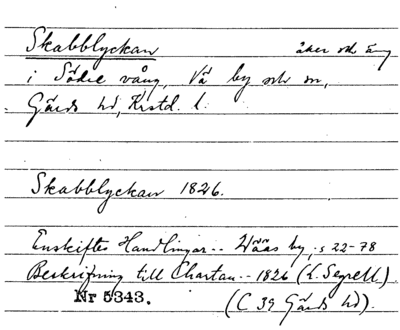 Skabblyckan åker och äng
i Södre vång, Vä by och sn,
Gärds hd, Krstd. l.
Skabblyckan 1826.
Enskiftes Handlingar.. Wääs by, s 22-78
Beskrifning till Chartan.. 1826 (L. Segrell).
Nr 5343. (C 39 Gärds hd).